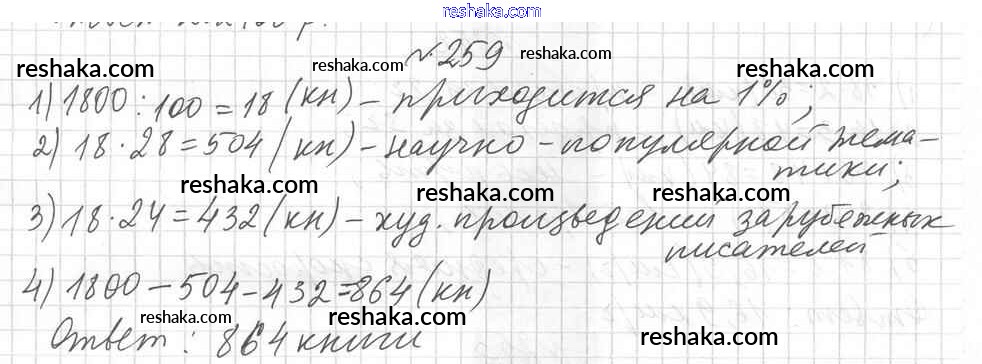 reshaka.com
№259 reshaka.com
reshaka.com reshaka.com reshaka.com
1) 1800 : 100 = 18 (кн) – приходится на 1%;
2) 18 · 28 = 504 (кн) – научно – популярной тема-
тики;
reshaka.com reshaka.com reshaka.com
3) 18 · 24 = 432 (кн) – худ. произведений зарубежных
писателей
reshaka.com reshaka.com reshaka.com
4) 1800 – 504 – 432 = 864 (кн)
reshaka.com reshaka.com reshaka.com
Ответ: 864 книги
reshaka.com